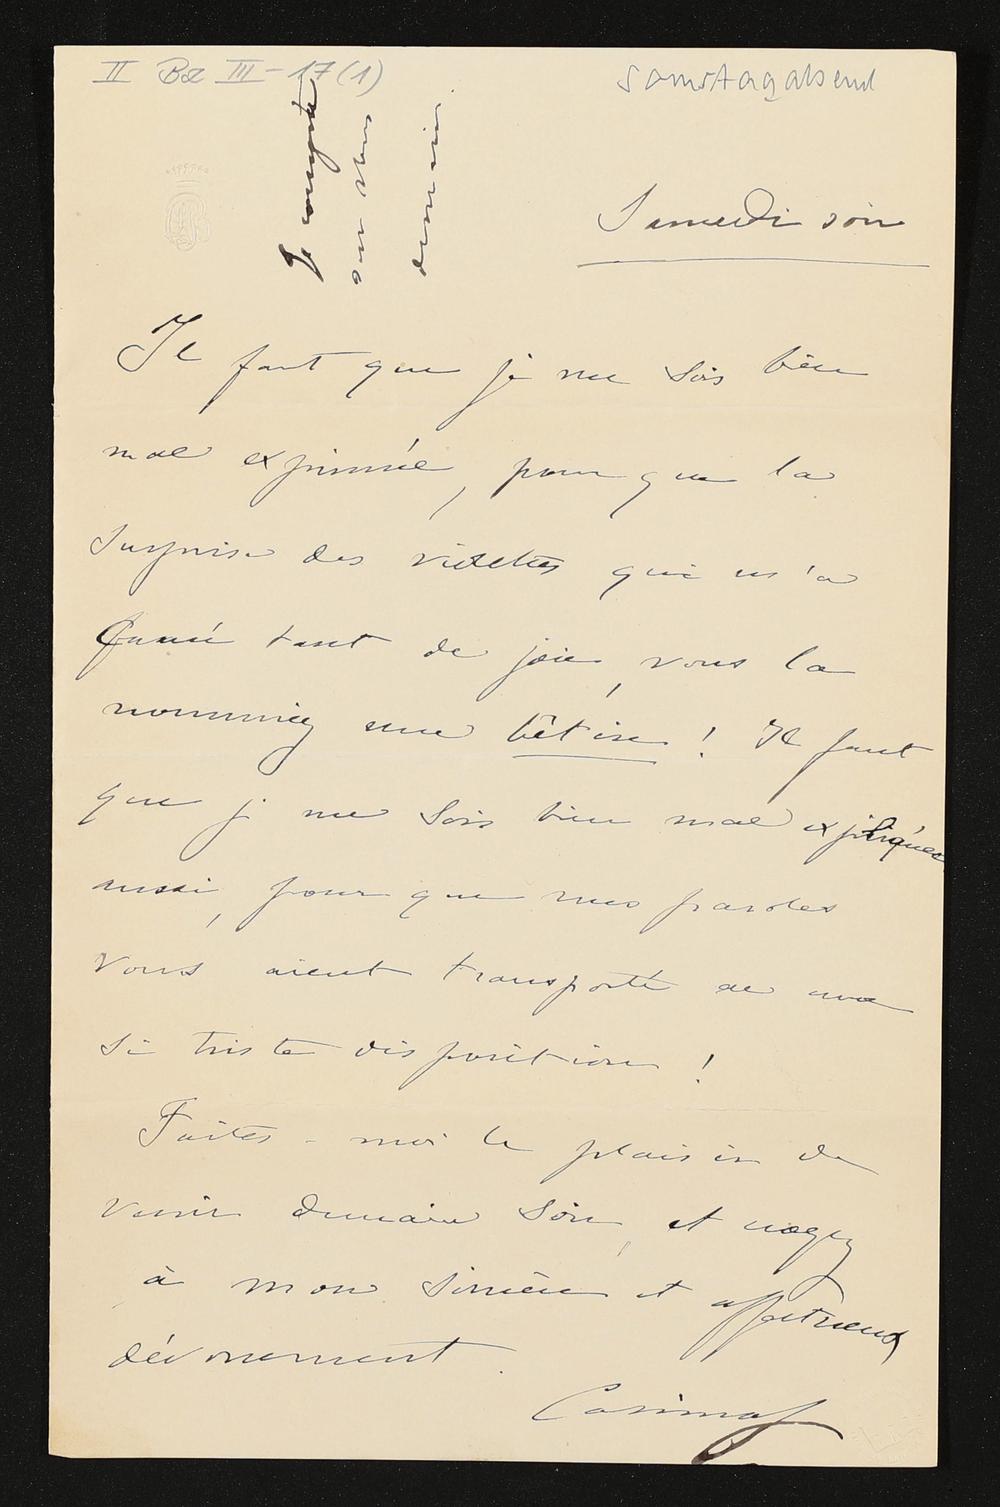 II Bd III - 17 (1)
Samstagabend
Je compte
sur vous
demain.
Samedi soir
Il faut que je me sois bien
mal exprimée, pour que la
surprise des violettes qui m'a
causé tant de joie, vous la
nommiez une bêtise ! Il faut
que je me sois bien mal expliquée
aussi, pour que mes paroles
vous aient transporté de une
si triste disposition !
Faites-moi le plaisir de
venir demain soir, et croyez
à mon sincère et affectueux
dévouement.
Cosima